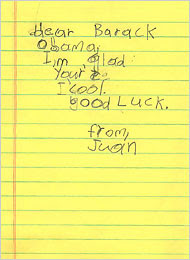 dear Barack
Obama,
I'm glad
Your
I cool.
good Luck.
from,
Juan